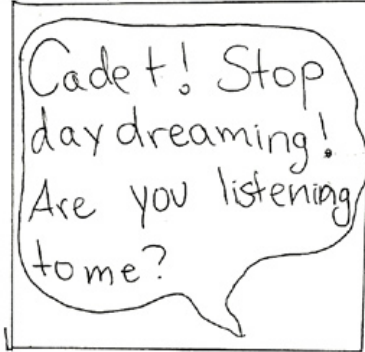 Cadet! Stop
daydreaming!
Are you listening
to me?